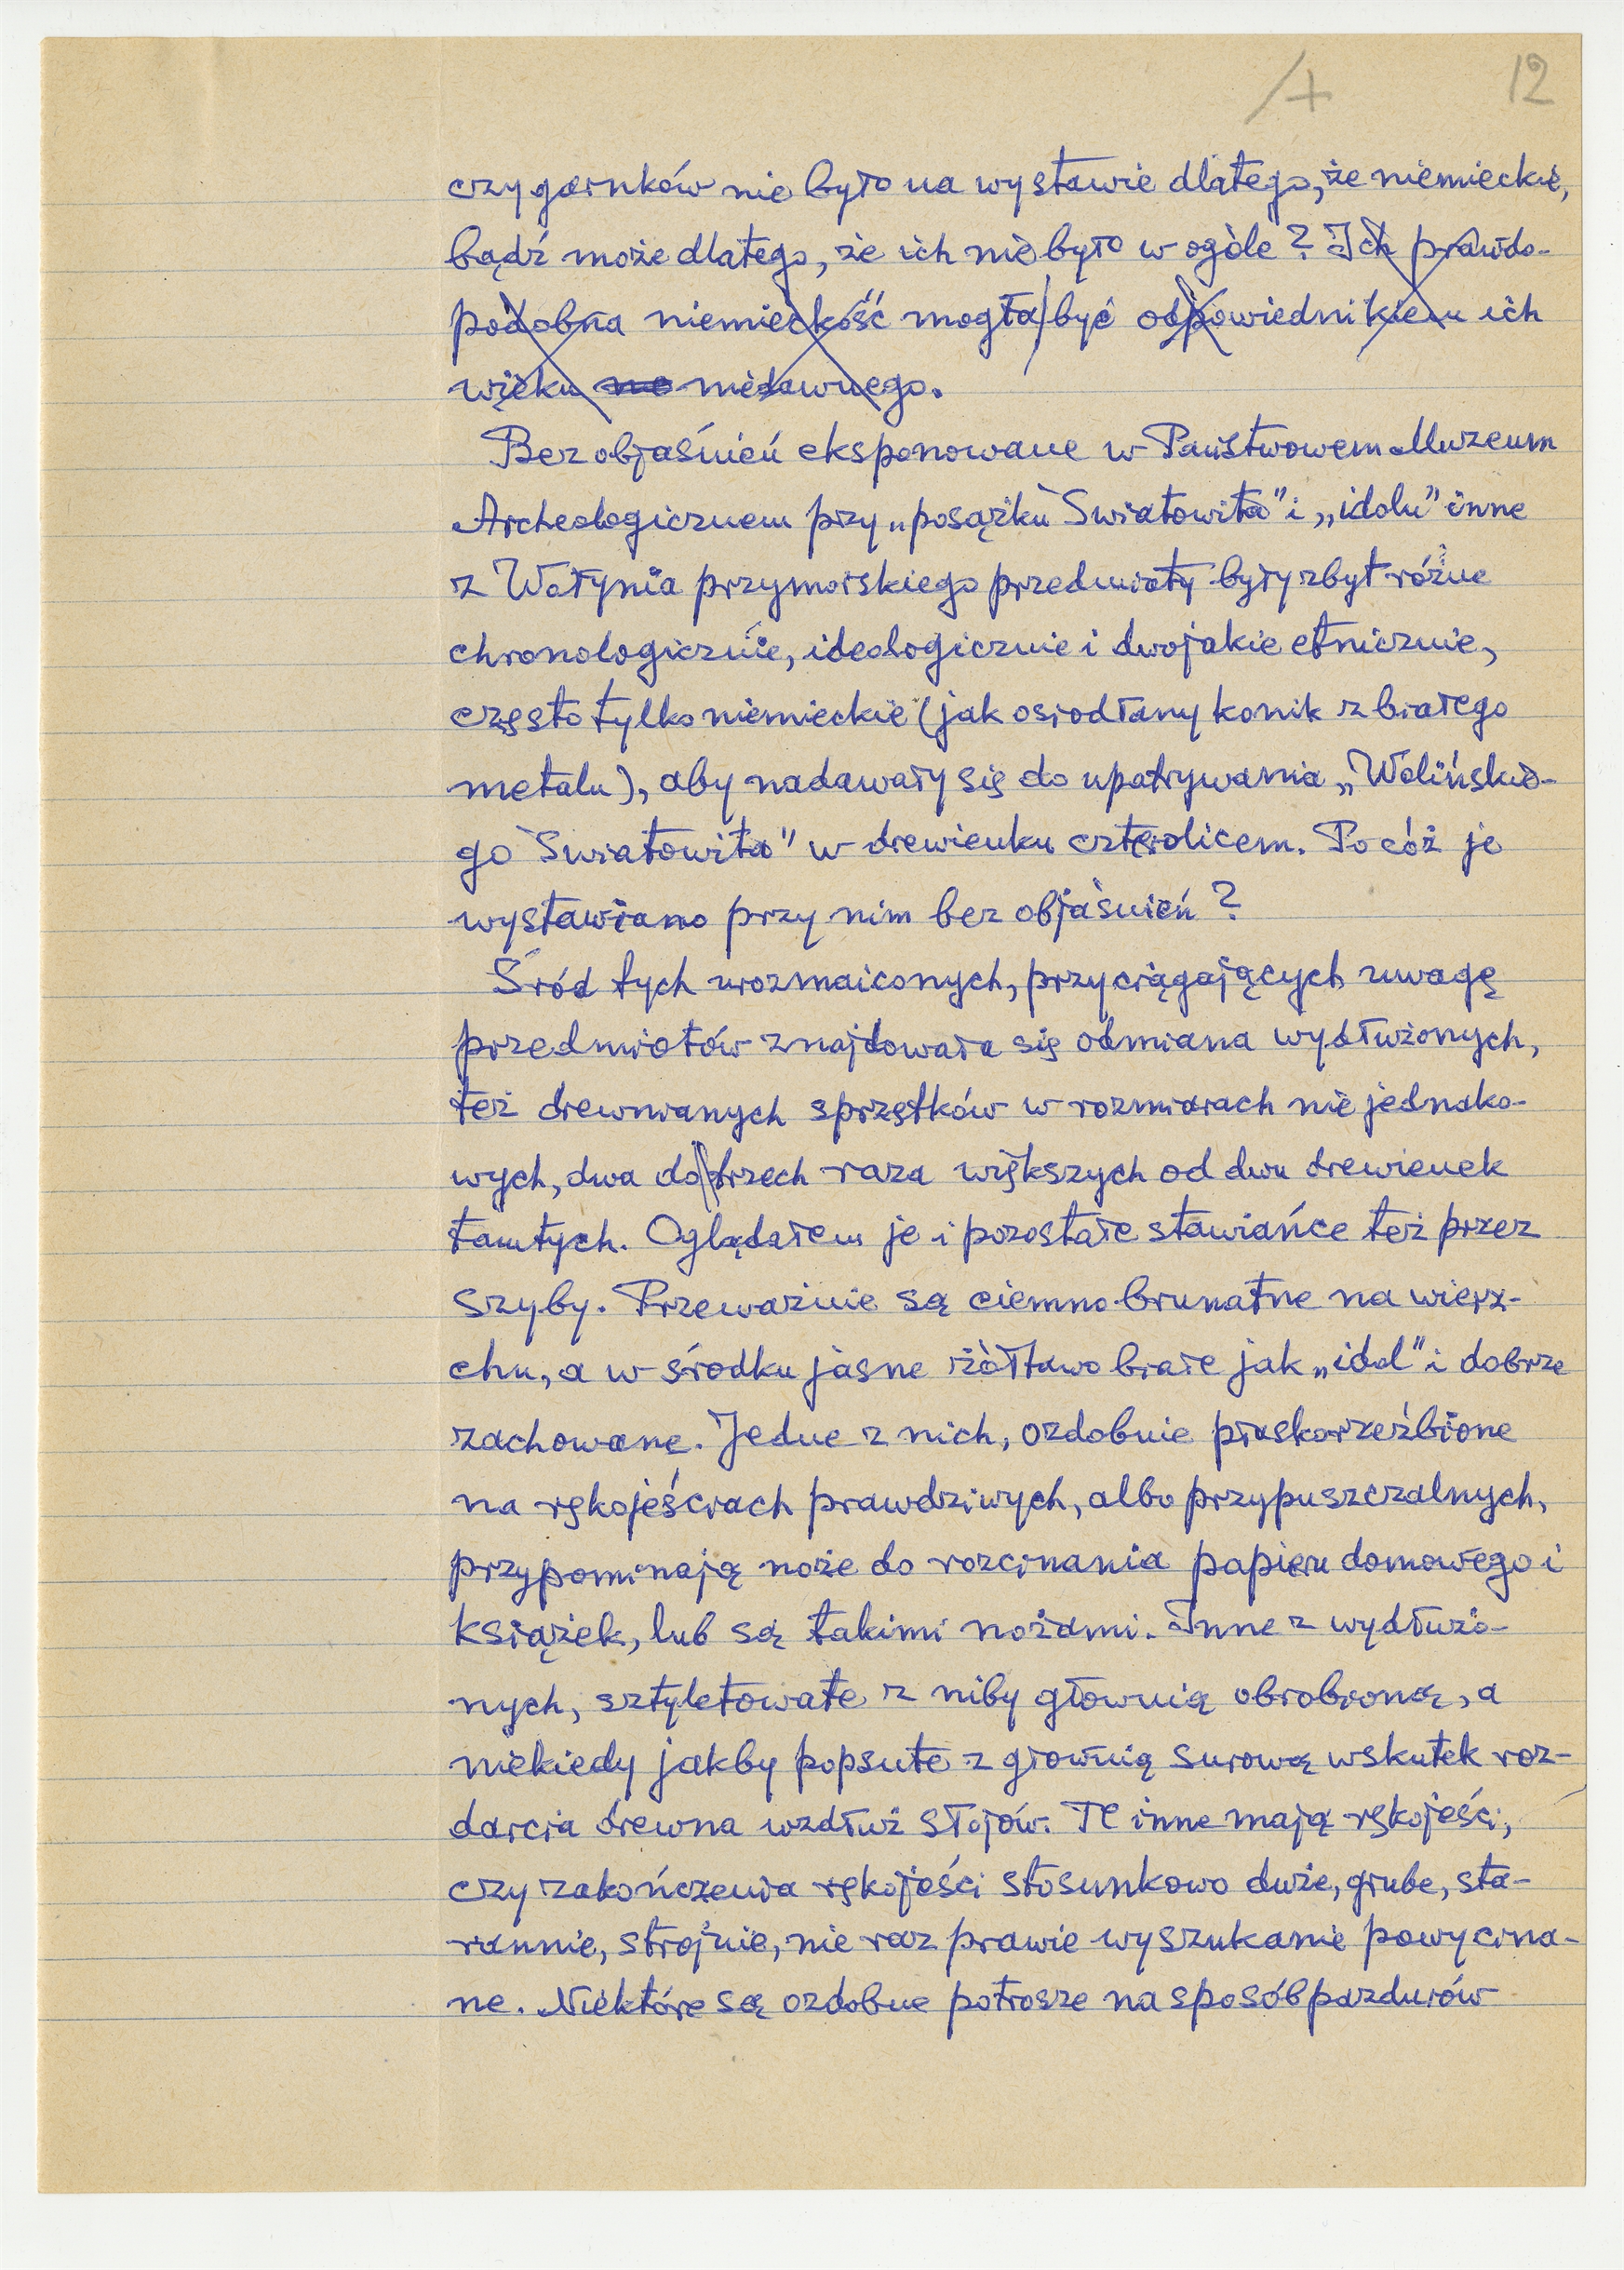 12
czy garnków nie było na wystawie dlatego, że niemieckie,
bądź może dlatego, że ich nie było w ogóle? Ich prawdo-
podobna niemieckość mogła być odpowiednikiem ich
wieku niedawnego.
Bez objaśnień eksponowane w Państwowem Muzeum
Archeologicznem przy „posążku Światowita" i „idolu" inne
z Wołynia przymorskiego przedmioty były zbyt różne
chronologicznie, ideologicznie i dwojakie etnicznie,
często tylko niemieckie (jak osiodłany konik z białego
metalu), aby nadawały się do upatrywania „Wolińskie-
go Światowita" w drewienku czterolicem. Po cóż je
wystawiano przy nim bez objaśnień?
Śród tych urozmaiconych, przyciągających uwagę
przedmiotów znajdowała się odmiana wydłużonych,
też drewnianych sprzętków w rozmiarach nie jednako-
wych, dwa do trzech raza większych od dwu drewienek
tamtych. Oglądałem je i pozostałe stawiańce też przez
szyby. Przeważnie są ciemno brunatne na wierz-
chu, a w środku jasne żółtawo białe jak „idol" i dobrze
zachowane. Jedne z nich, ozdobnie płaskorzeźbione
na rękojeściach prawdziwych, albo przypuszczalnych,
przypominają noże do rozcinania papieru domowego i
książek, lub są takimi nożami. Inne z wydłużo-
nych, sztyletowate z niby głownią obrobioną, a
niekiedy jakby popsute z głownią surową wskutek roz-
darcia drewna wzdłuż słojów. Te inne mają rękojeści,
czy zakończenia rękojeści stosunkowo duże, grube, sta-
rannie, strojnie, nie raz prawie wyszukanie powycina-
ne. Niektóre są ozdobne potrosze na sposób pazdurów